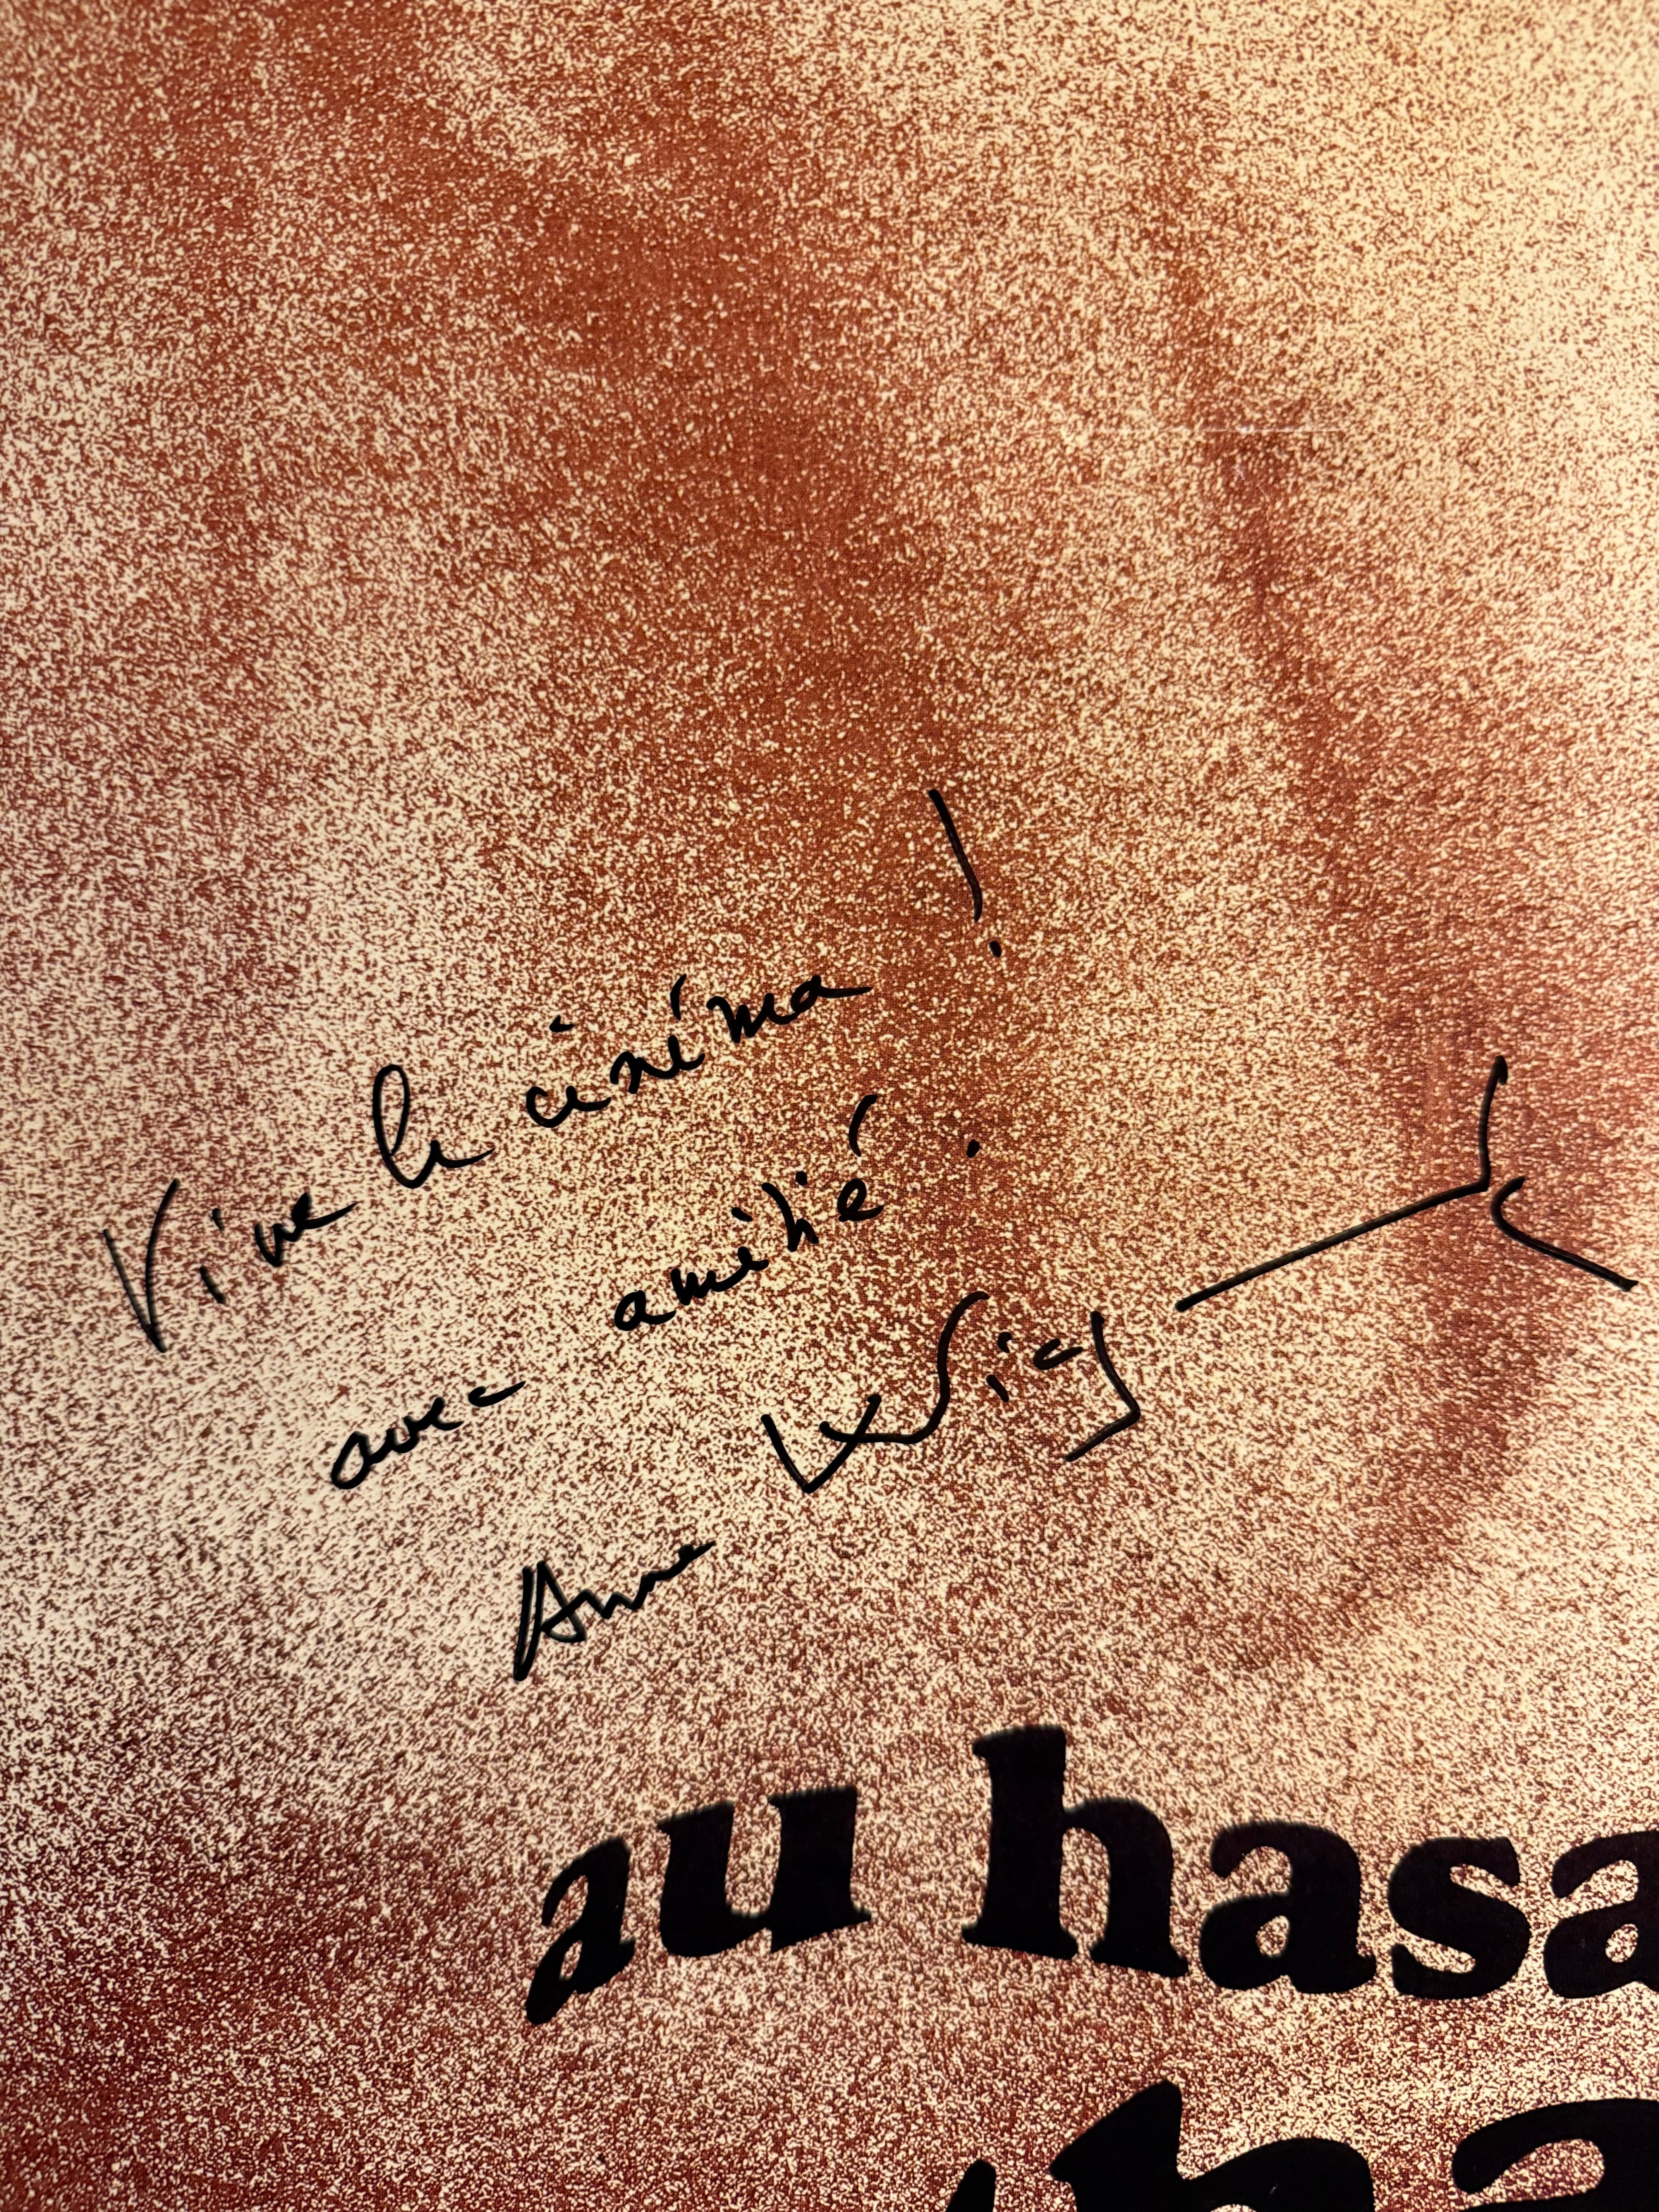 Vive le cinéma !
avec amitié !
Anne Wiaz
au hasa